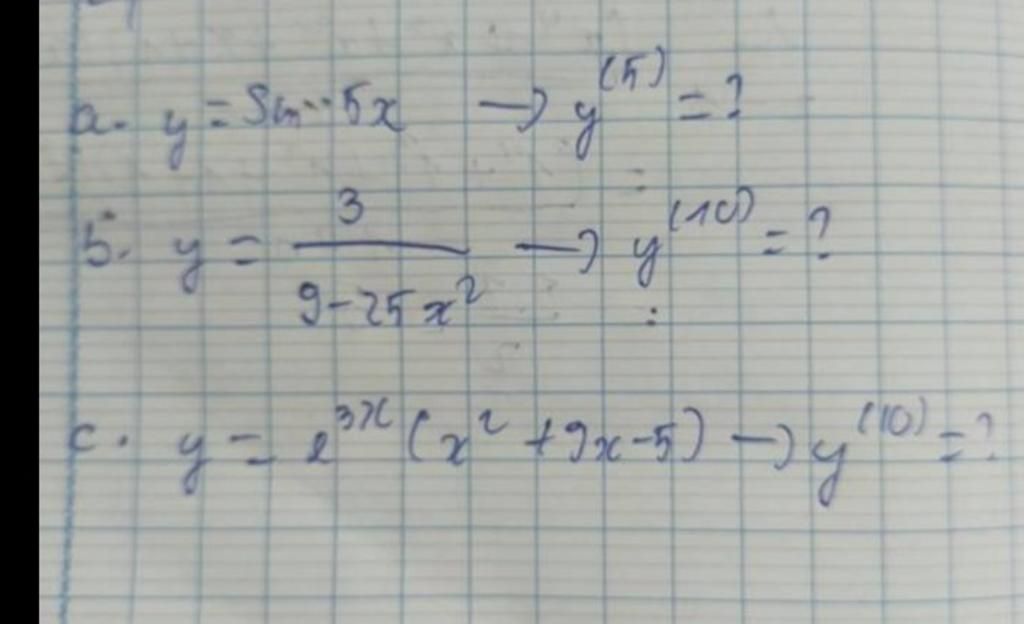 a. y = Sin 5x → y⁽⁵⁾ = ?
b. y = 3 / (9-25x²) → y⁽¹⁰⁾ = ?
c. y = e³ˣ (x² + 9x - 5) → y⁽¹⁰⁾ = ?